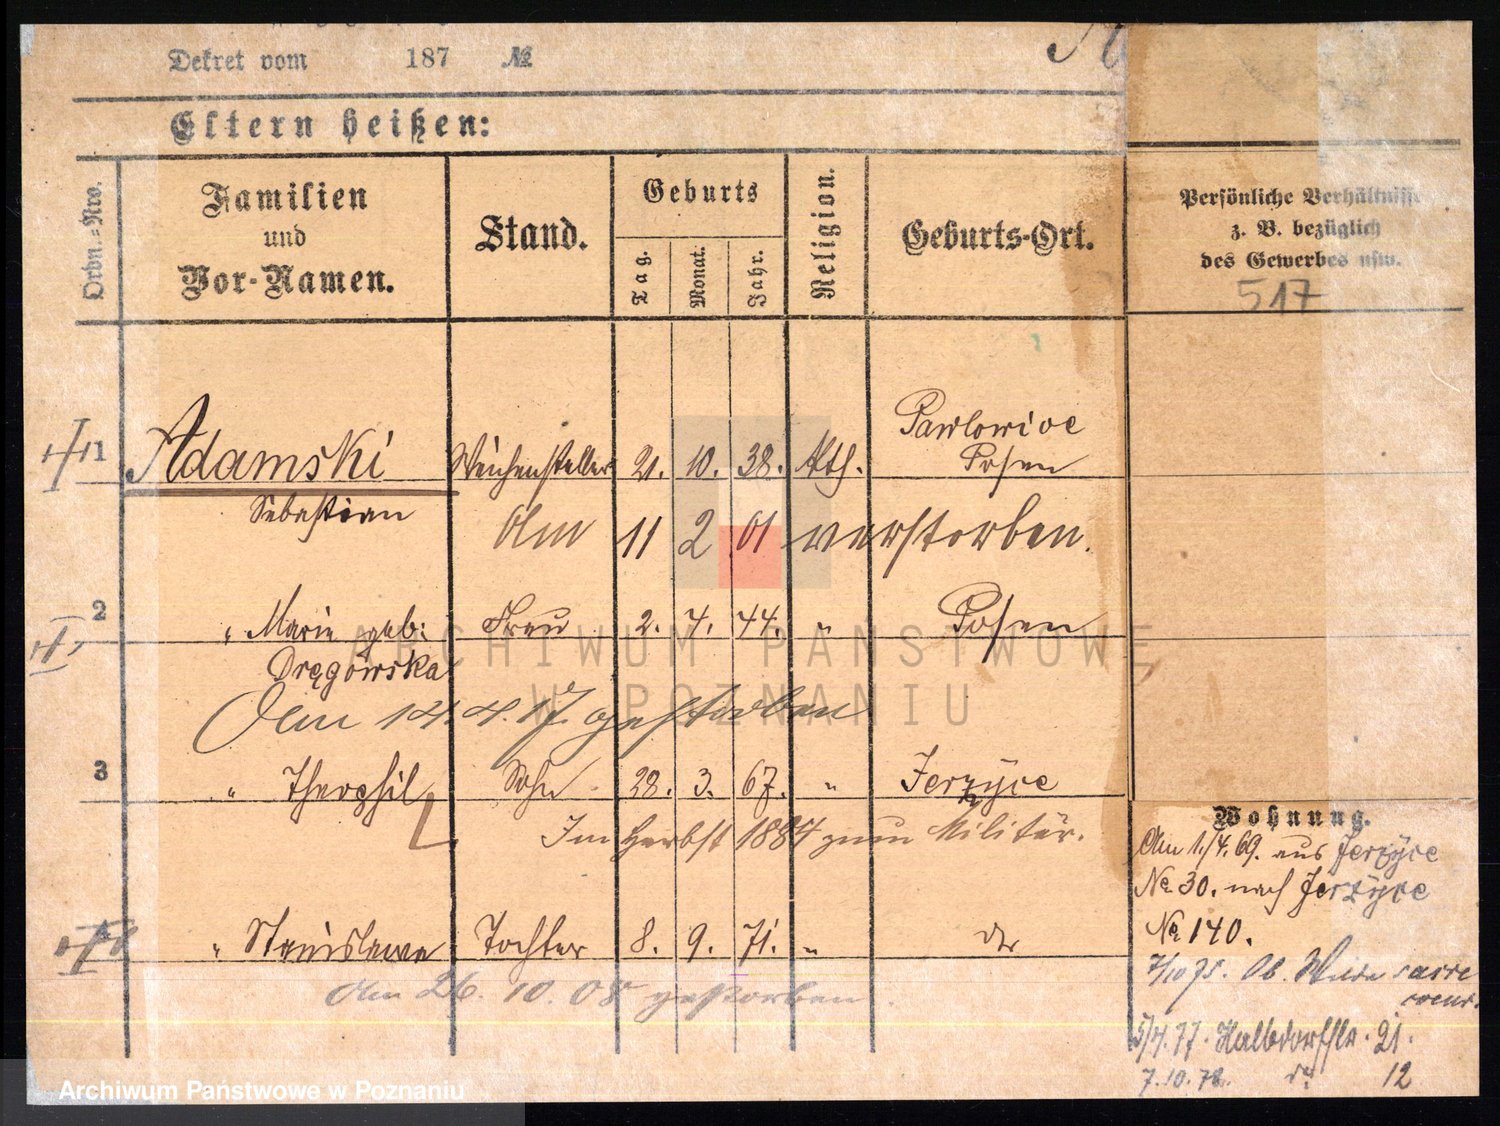 Dekret vom 187 №
Eltern heißen:
Ordn.=Nro.
Familien
und
Vor-Namen.
Stand.
Geburts
Tag.
Monat.
Jahr.
Religion.
Geburts-Ort.
Persönliche Verhältnisse
z. B. bezüglich
des Gewerbes usw.
517
1 Adamski Weichensteller 21. 10. 38. Kth. Pawlowice
Posen
Sebastian
Am 11 2 01 verstorben.
2 " Marie geb: Frau 2. 7. 44. " Posen
Dręgowska
Am 14. 4. 17 gestorben
3 " Theophil Sohn 28. 3. 67. " Jerzyce
Im Herbst 1887 zum Militär.
" Stanislawa Tochter 8. 9. 71. " do
Am 26. 10. 08 gestorben.
Wohnung.
Am 1./4. 69. aus Jerzyce
No 30. nach Jerzyce
No 140.
7/10 75. Ob.
5/4. 77. Halbdorfstr. 21.
7.10.78. do 12
ARCHIWUM PAŃSTWOWE
W POZNANIU
Archiwum Państwowe w Poznaniu